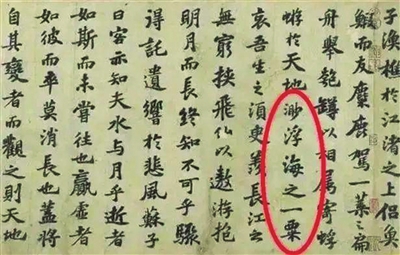 子漁樵於江渚之上侶魚
鰕而友麋鹿駕一葉之扁
舟舉匏罇以相屬寄蜉
蝣於天地渺浮海之一粟
哀吾生之須臾羨長江之
無窮挾飛仙以遨游抱
明月而長終知不可乎驟
得託遺響於悲風蘇子
曰客亦知夫水與月乎逝者
如斯而未嘗往也贏虛者
如彼而卒莫消長也蓋將
自其變者而觀之則天地